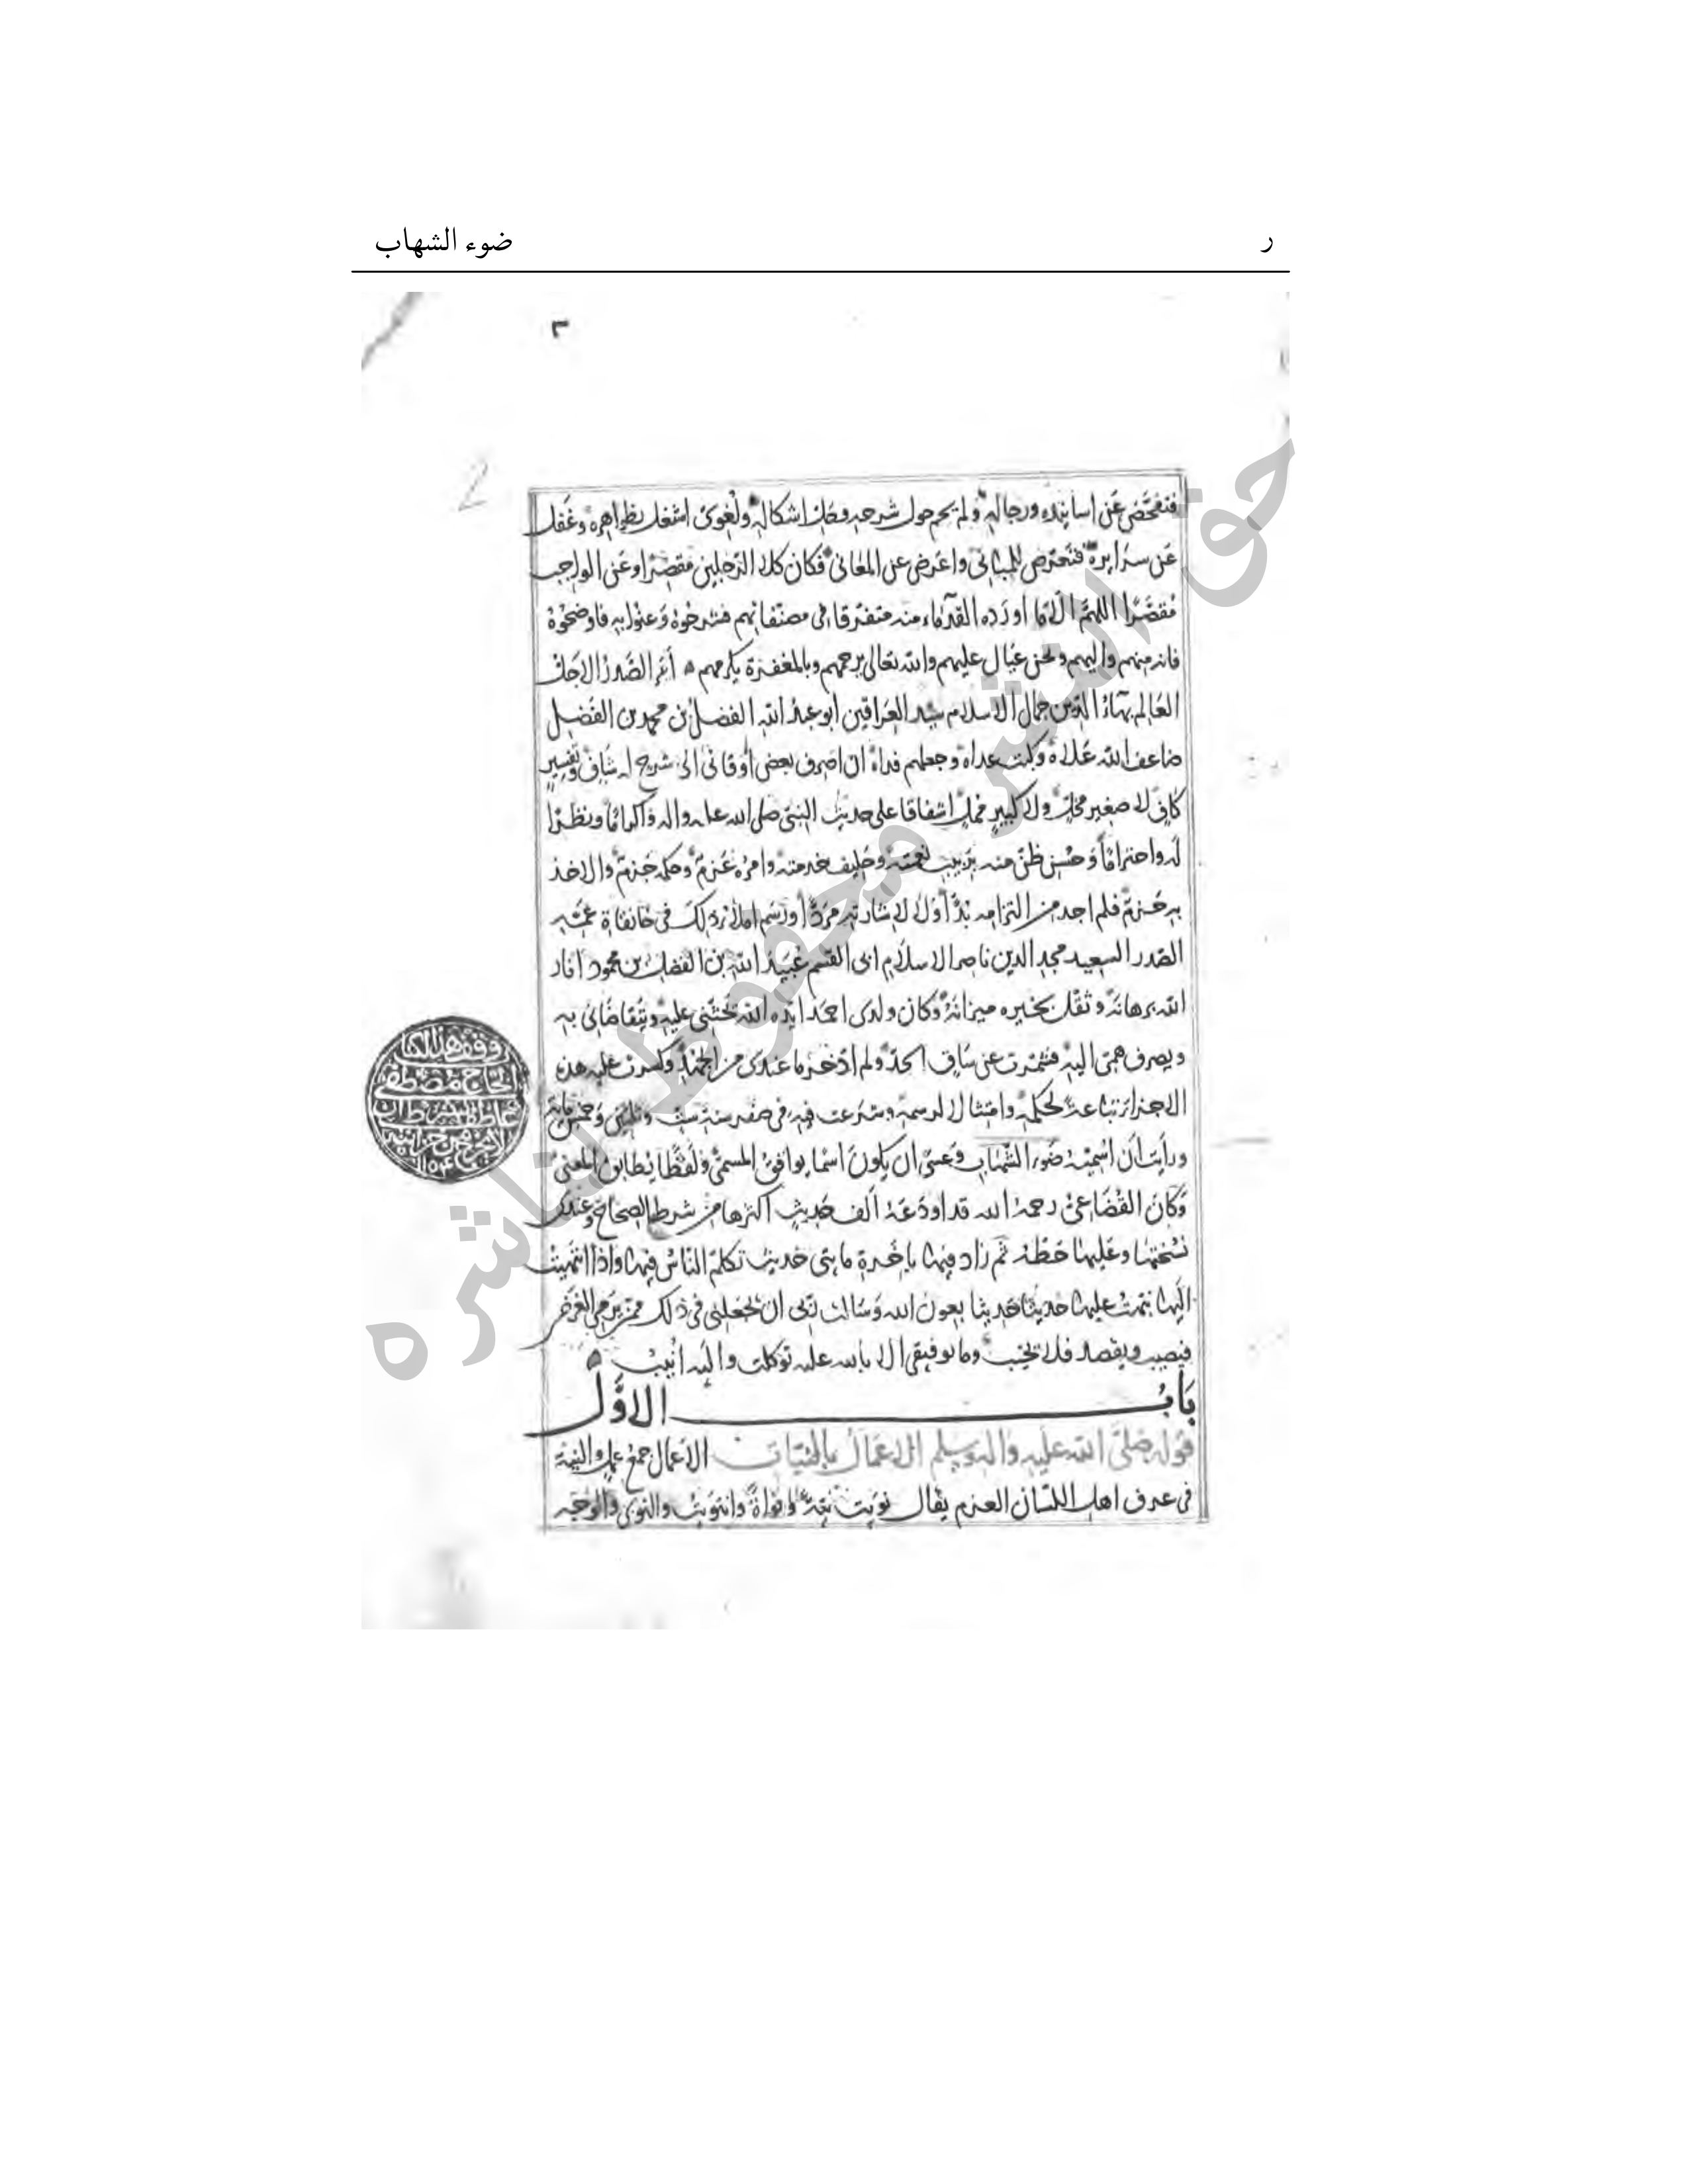 ر
ضوء الشهاب
٣
2
فتفحّص عن اسانيده ورجاله ولم يحم حول شرحه وحل اشكاله ولغوى اشتغل بظواهره وغفل
عن سرايره فتعرّض للمبانى واعرض عن المعانى فكان كلا الرجلين مقصرا وعن الواجب
مقصّرا اللهمّ الا ما اورده القدماء منه متفرقا فى مصنفاتهم فشرحوه وعنوا به فاوضحوه
فانه منهم واليهم ونحن عيال عليهم والله تعالى يرحمهم وبالمغفرة يكرمهم امر الصّدر الاجل
العالم بهاء الدين جمال الاسلام سيد العراقين ابو عبد الله الفضل بن محمد بن الفضل
ضاعف الله علاه وكبت عداه وجعلهم فداه ان اصرف بعض اوقاتى الى شرح له شاف وتفسير
كاف لا صغير مخل ولا كبير ممل اشفاقا على حديث النبى صلى الله عليه واله واكراما ونظرا
له واحتراما وحسن ظن منه بربيب نعمته وحليف خدمته وامره عزم وحكمه جزم والاخذ
به حزم فلم اجد من التزامه بدّا ولا لاشارته مردّا ورسم املاء ذلك فى خانقاه عمّه
الصّدر السعيد مجد الدين ناصر الاسلام ابى القسم عبيد الله بن الفضل بن محمود انار
الله برهانه وثقل بخيره ميزانه وكان ولدى احمد ايده الله يحثنى عليه ويتقاضانى به
ويصرف همتى اليه فشمّرت عن ساق الجد ولم ادّخر ما عندى من الجهد وكسرت عليه هذه
الاجزاء تباعة لحكمه وامتثالا لرسمه وشرعت فيه فى صفر سنة ست وثلثين وخمس مائة
ورأيت أن اسميه ضوء الشهاب وعسى ان يكون اسما يوافق المسمى ولفظا يطابق المعنى
وكان القضاعى رحمه الله قد اودعه الف حديث اكثرها من شرط الصحاح وعندى
نسختها وعليها خطه ثم زاد فيها باخرة مايتى حديث تكلم الناس فيها واذا انتهيت
اليها نبهت عليها حديثا حديثا بعون الله وسالت ربى ان يجعلنى فى ذلك ممن يرمى الغرض
فيصيب ويقصد فلا يخيب وما توفيقى الا بالله عليه توكلت واليه انيب
باب الاوّل
قوله صلى الله عليه واله وسلم الاعمال بالنيّات الاعمال جمع عمل والنية
فى عرف اهل اللسان العزم يقال نويت نية ونواة وانتويت والنوى والوجه
وقف هذا الكتاب
الحاج مصطفى
١١٥٤
حق النشر محفوظ لناشره